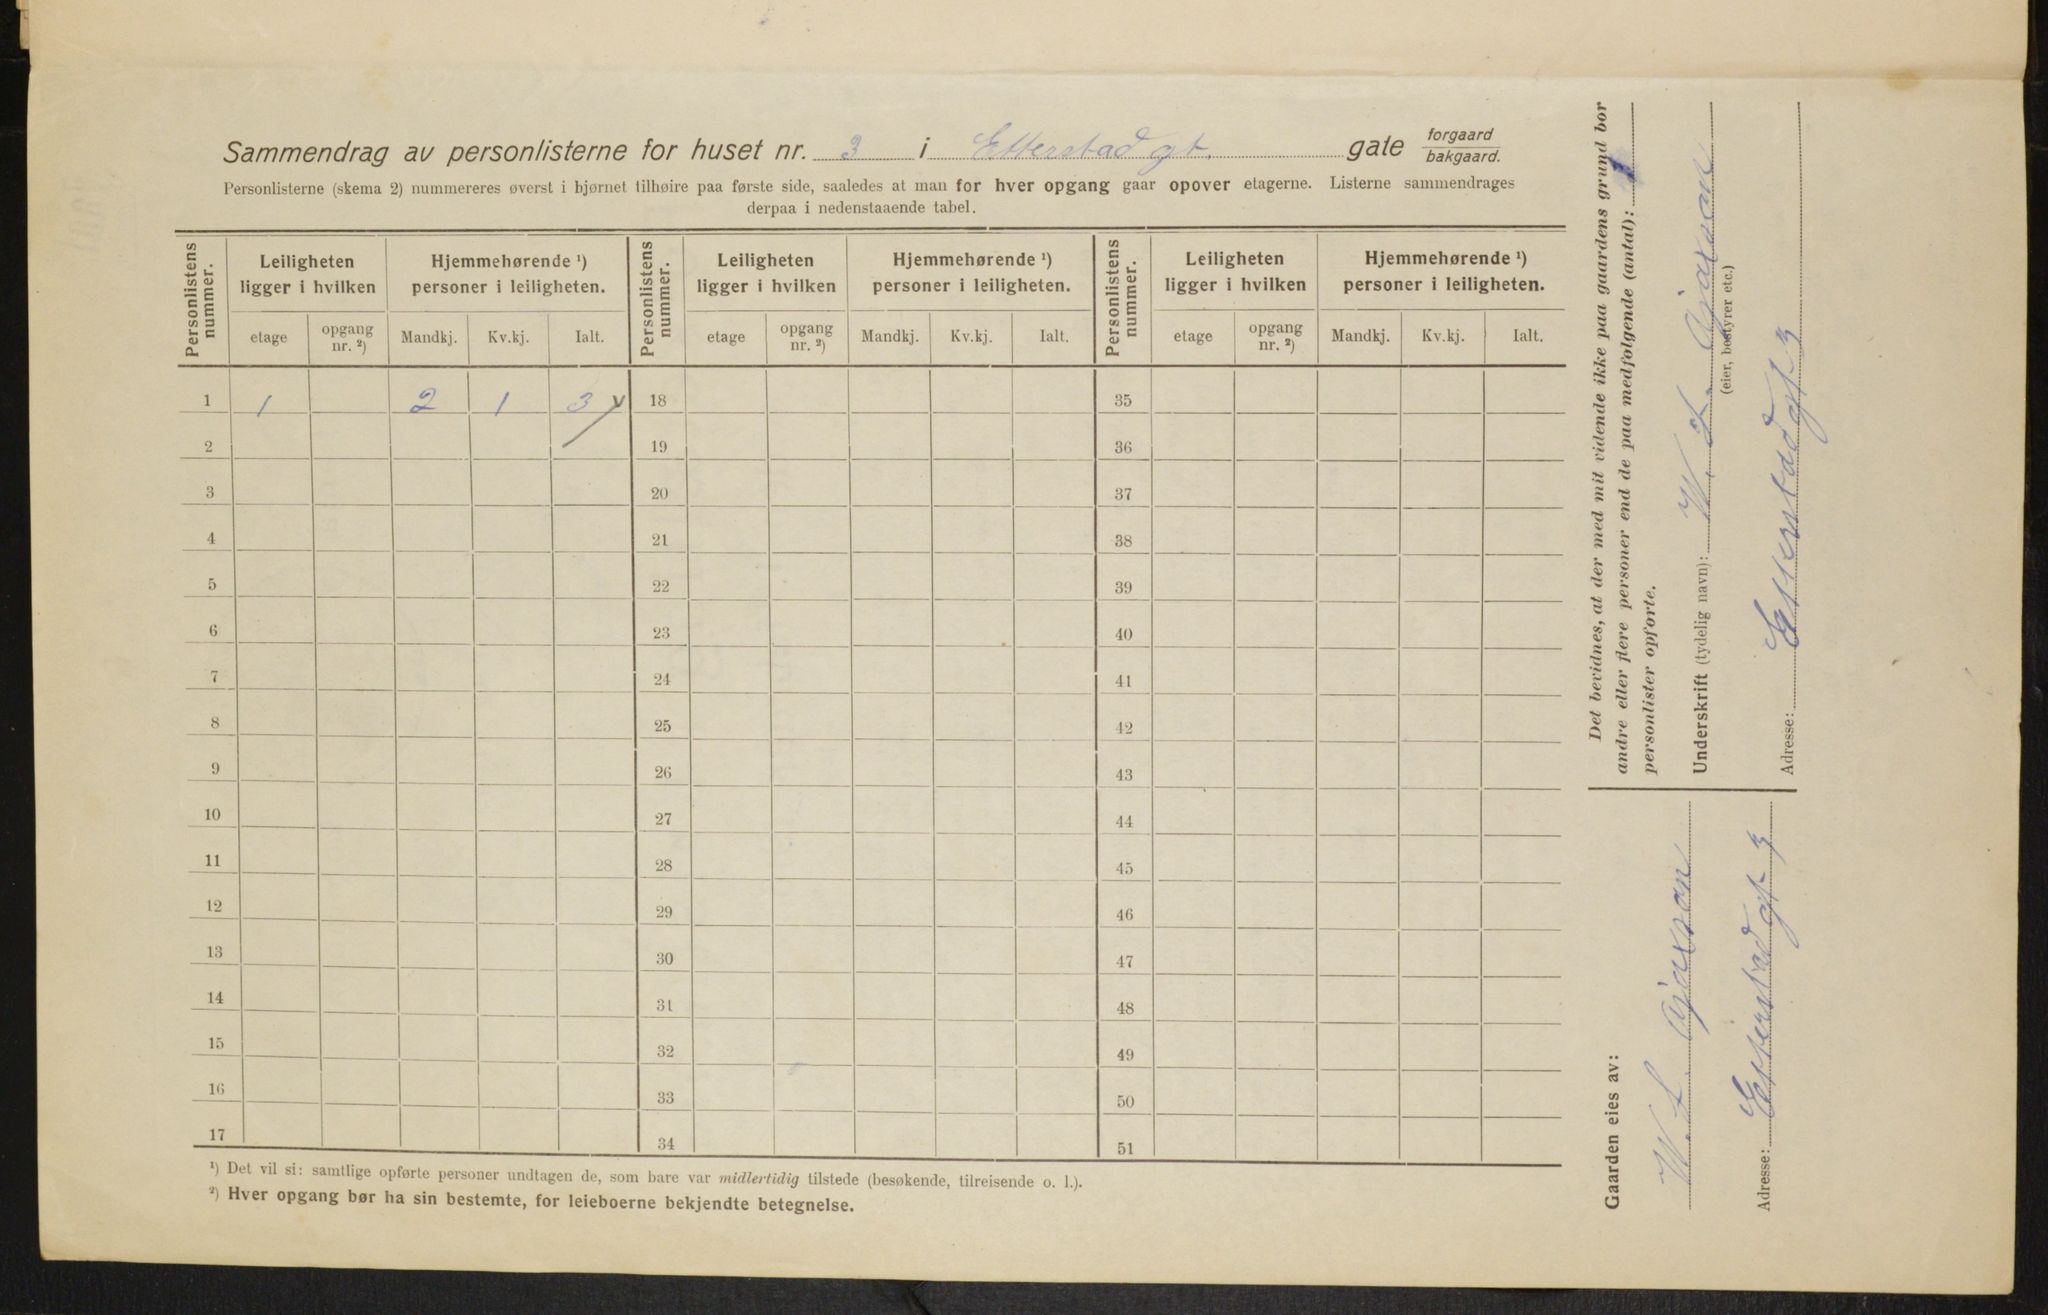 Sammendrag av personlisterne for huset nr. 3 i Etterstadgt. gate forgaard / bakgaard.
Personlisterne (skema 2) nummereres øverst i hjørnet tilhøire paa første side, saaledes at man for hver opgang gaar opover etagerne. Listerne sammendrages
derpaa i nedenstaaende tabel.
Personlistens nummer. Leiligheten ligger i hvilken Hjemmehørende ¹) personer i leiligheten. Personlistens nummer. Leiligheten ligger i hvilken Hjemmehørende ¹) personer i leiligheten. Personlistens nummer. Leiligheten ligger i hvilken Hjemmehørende ¹) personer i leiligheten.
etage opgang nr. ²) Mandkj. Kv.kj. Ialt. etage opgang nr. ²) Mandkj. Kv.kj. Ialt. etage opgang nr. ²) Mandkj. Kv.kj. Ialt.
1 1 2 1 3 18 35
2 19 36
3 20 37
4 21 38
5 22 39
6 23 40
7 24 41
8 25 42
9 26 43
10 27 44
11 28 45
12 29 46
13 30 47
14 31 48
15 32 49
16 33 50
17 34 51
¹) Det vil si: samtlige opførte personer undtagen de, som bare var midlertidig tilstede (besøkende, tilreisende o. l.).
²) Hver opgang bør ha sin bestemte, for leieboerne bekjendte betegnelse.
Det bevidnes, at der med mit vidende ikke paa gaardens grund bor
andre eller flere personer end de paa medfølgende (antal): 1
personlister opførte.
Underskrift (tydelig navn):
(eier, bestyrer etc.)
Adresse: Etterstadgt 3
Gaarden eies av:
Adresse: Etterstadgt 3